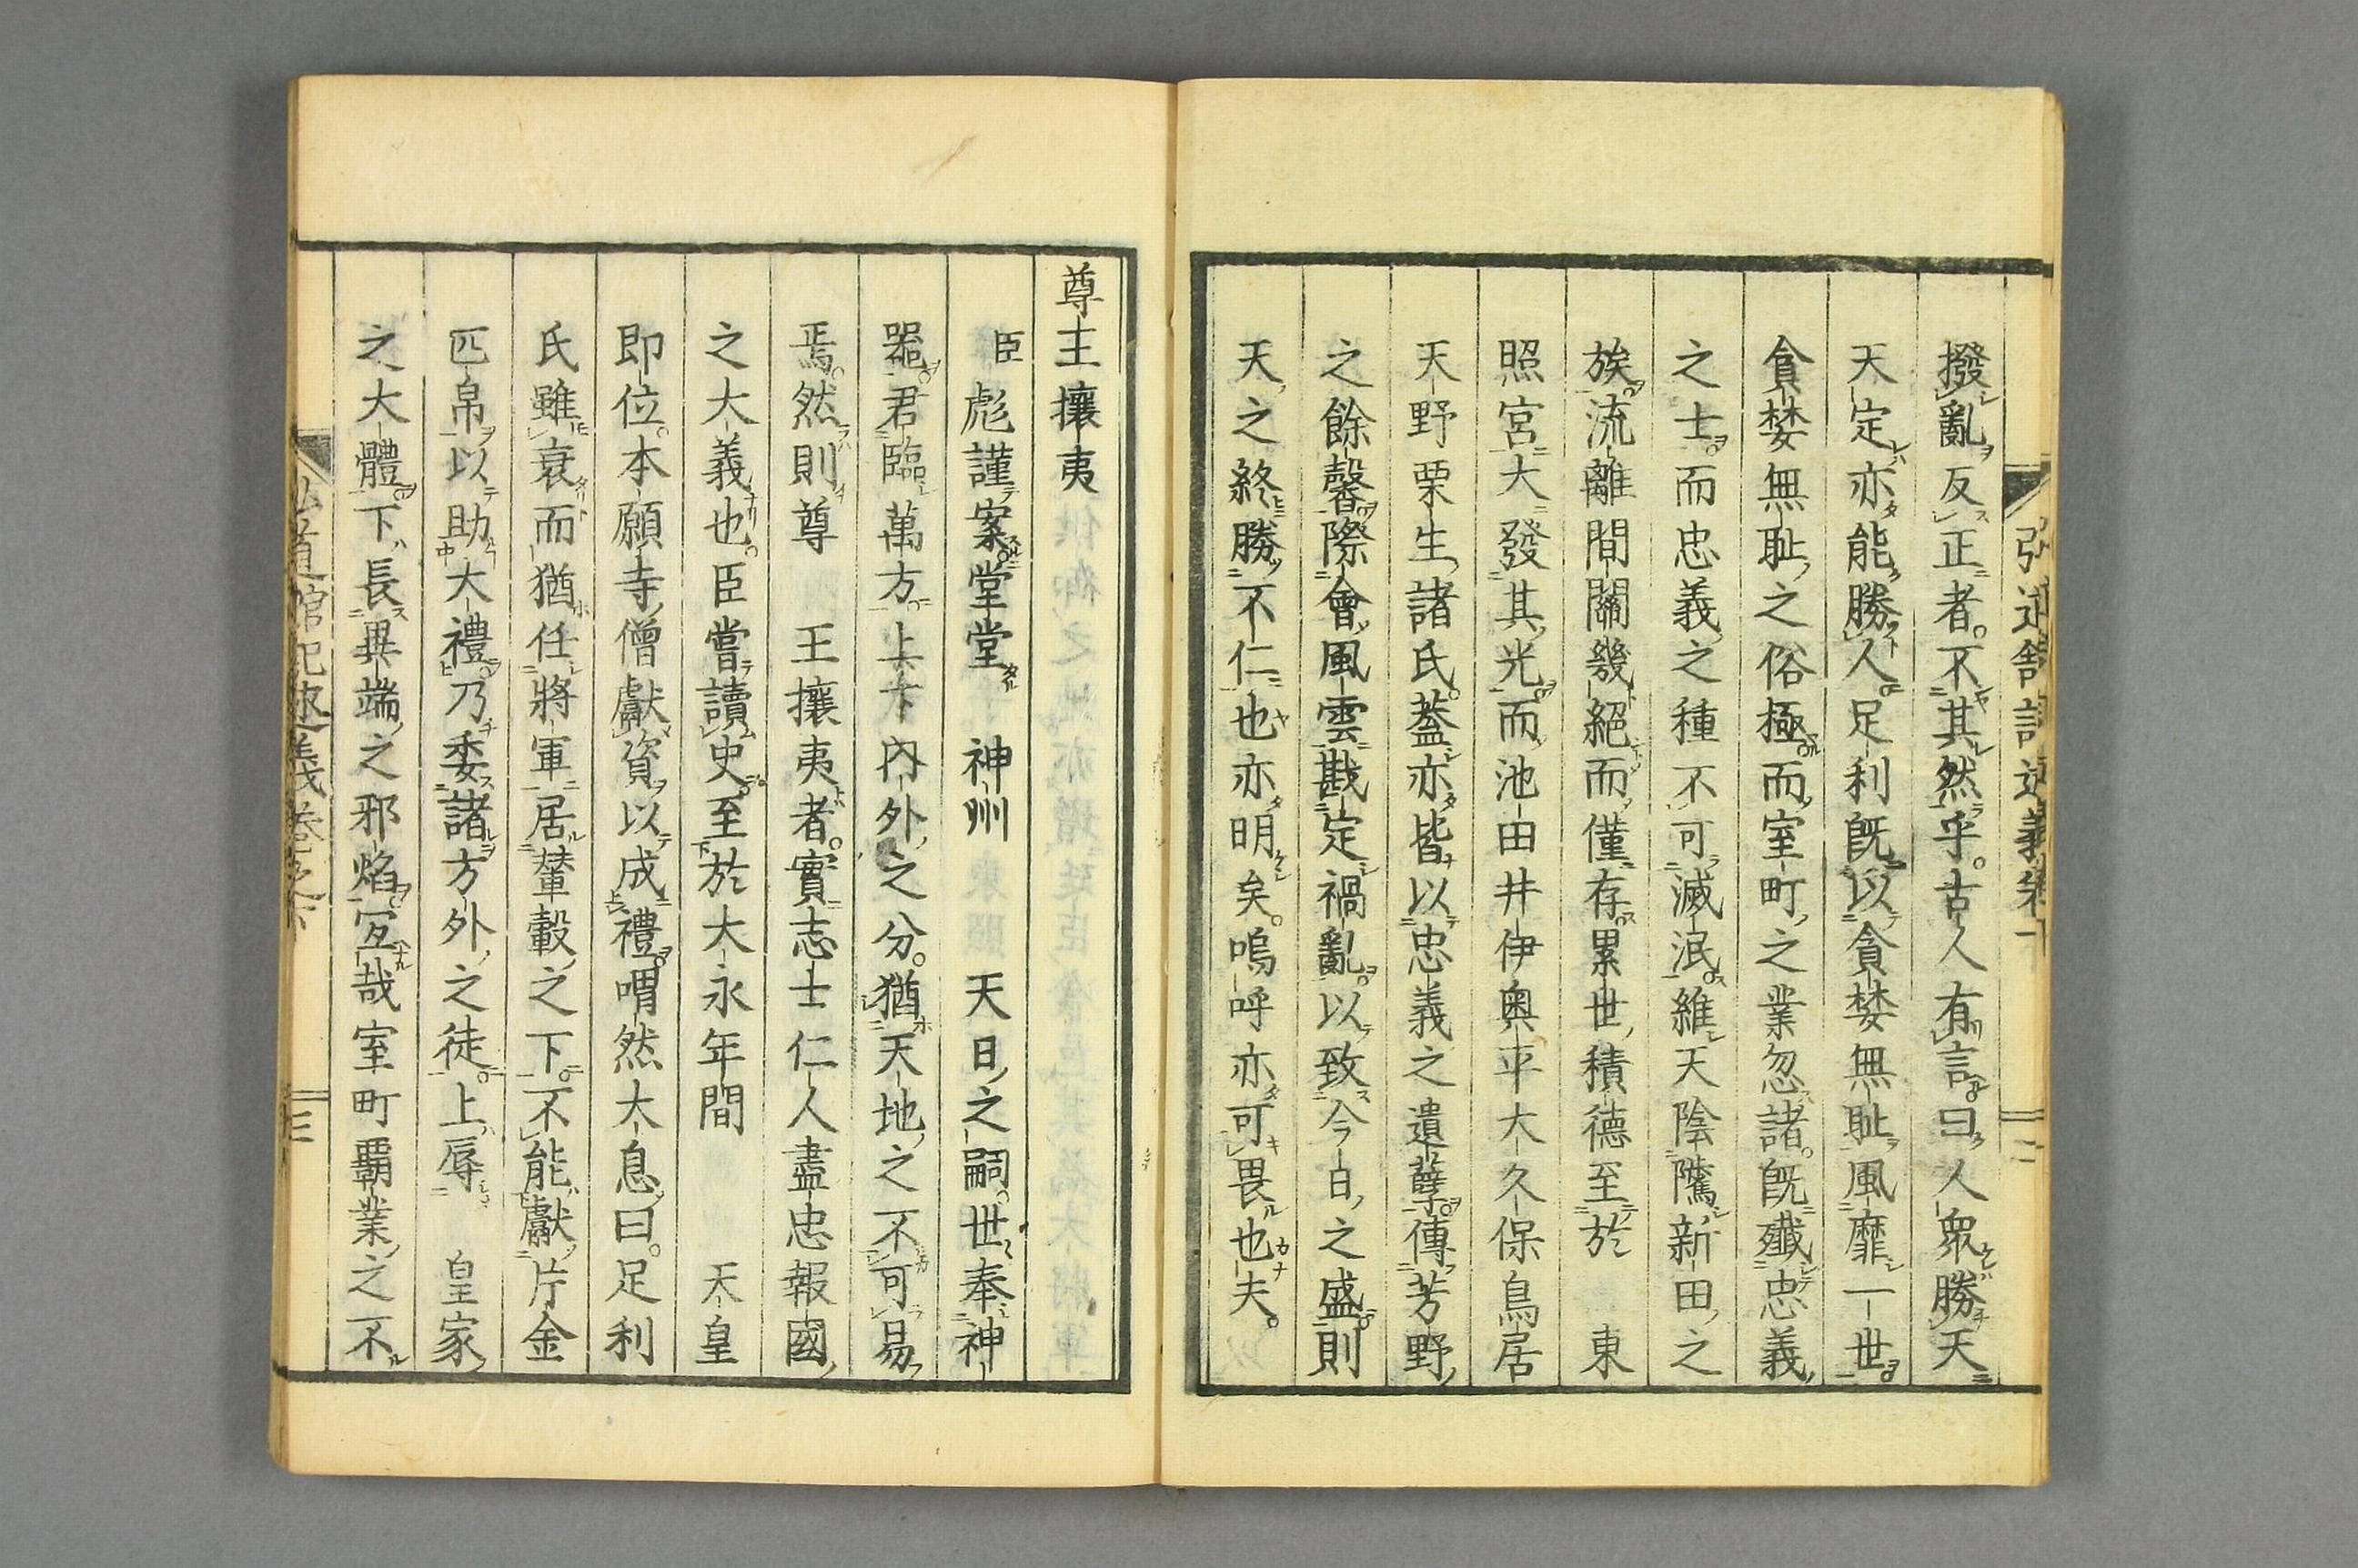 撥亂反正者。不其然乎。古人有言。曰人衆勝天
天定亦能勝人。足利既以貪婪無耻風靡一世。
貪婪無耻之俗極。而室町之業忽諸。既殲忠義
之士。而忠義之種不可滅泯。維天陰隲新田之
族。流離間關幾絕而僅存。累世積德至於　東
照宮大發其光。而池田井伊奥平大久保鳥居
天野栗生諸氏。蓋亦皆以忠義之遺孽。傳芳野
之餘馨。際會風雲戡定禍亂。以致今日之盛。則
天之終勝不仁也亦明矣。嗚呼亦可畏也夫。
尊王攘夷
臣彪謹案。堂堂　神州　　天日之嗣。世奉神
器。君臨萬方。上下内外之分。猶天地之不可易
焉。然則尊　王攘夷者。實志士仁人盡忠報國
之大義也。臣嘗讀史。至於大永年間　　天皇
即位。本願寺僧獻資以成禮。喟然大息曰。足利
氏雖衰而猶任將軍居輦轂之下。不能獻片金
匹帛以助大禮。乃委諸方外之徒。上辱　皇家
之大體。下長異端之邪焰。宜哉室町覇業之不
弘道館記述義卷之下
三